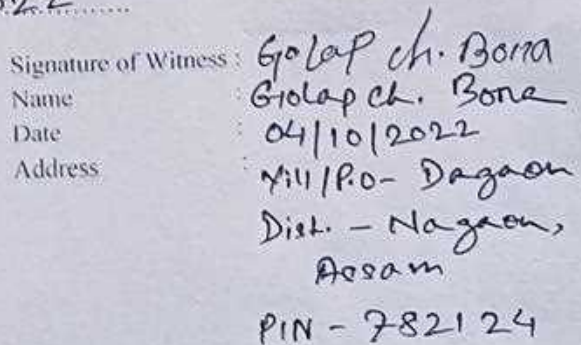 Signature of Witness : Golap ch. Bora
Name : Golap ch. Bora
Date : 04/10/2022
Address : Vill/P.O- Dagaon
Dist. - Nagaon,
Assam
PIN - 782124